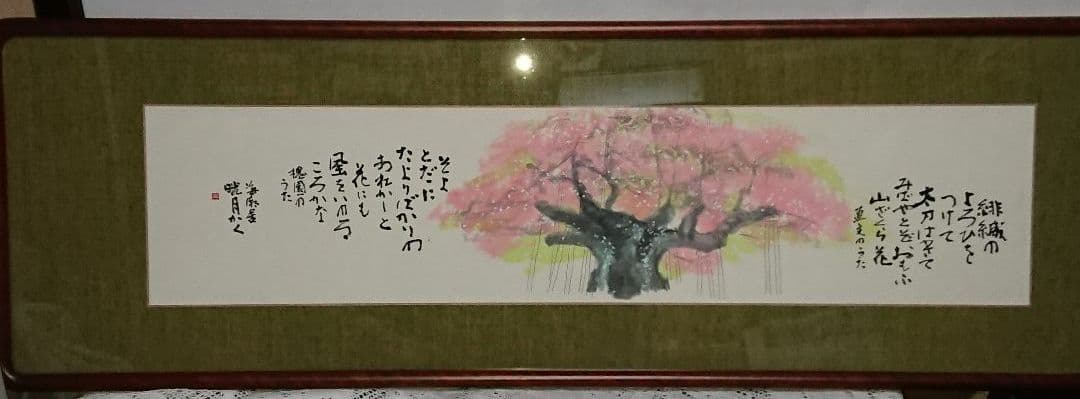 緋縅の
よろひを
つけて
太刀はきて
みばやとぞおもふ
山ざくら花
直文のうた
そよ
とだに
たよりばかりの
あれかしと
花にも
風をいのる
ころかな
槐園の
うた
暁月かく